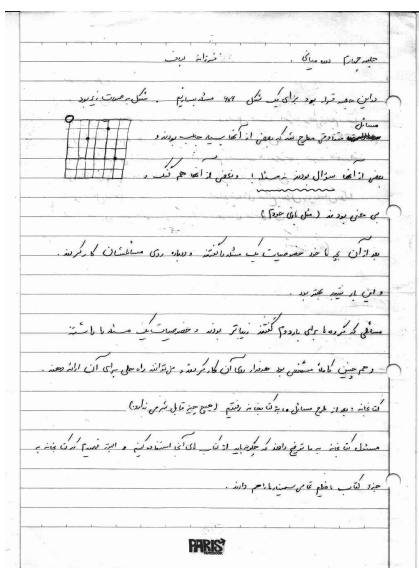 جلسه چهارم دوره میانی . فرزانه
در این جلسه قرار بود برای یک شکل مسئله بسازیم . شکل به صورت زیر بود
مسائل
متفاوتی مطرح شد که بعضی از آنها بسیار جالب بودند و
بعضی از آنها سؤال بودند نه مسئله ! و بعضی از آنها هم گنگ و
بی معنی بودند (مثل مال خودم)
بعد از آن بچه ها خصوصیات یک مسئله را گفتند و دوباره روی مسائلشان کار کردند.
و این بار نتیجه بهتر بود .
مسائلی که گروه ها برای بار دوم گفتند زیباتر بودند و خصوصیات یک مسئله را داشتند
و هم چنین کاملا مشخص بود روی آن کار کردند و می توانند راه حلی برای آن ارائه دهند .
کتابخانه : بعد از طرح مسائل به کتابخانه رفتیم (هیچ چیز قابل نداره)
مسئول کتابخانه به ما توضیح دادند که چگونه باید از کتاب های آنجا استفاده کنیم و البته فهمیدیم که کتابخانه به
جز کتاب را هم دارند .
PARIS